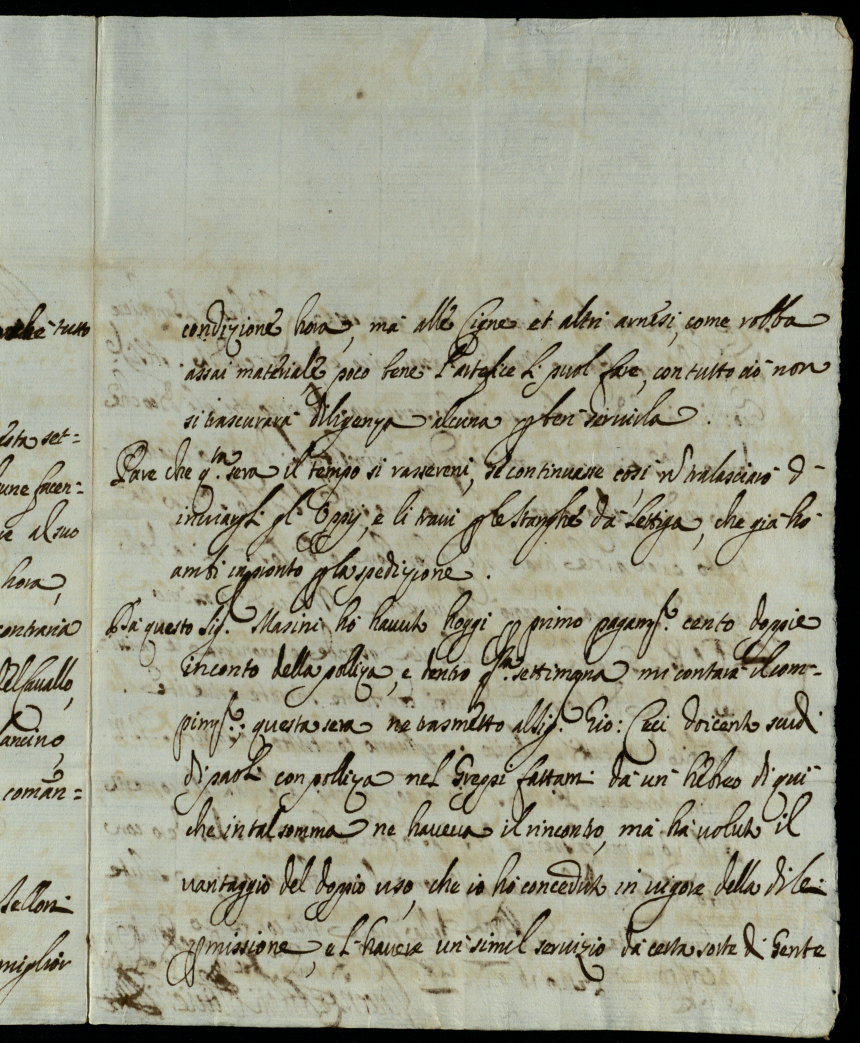 che tutto
esta set=
lune facen=
ve al suo
hora,
contraria
Del Cavallo,
ancino,
coman=
sellari
miglior
condizione hora, ma alle Cigne et altri arnesi, come robba
assai materiale poco bene l'artefice li puol fare, con tutto ciò non
si trascurarà diligenza alcuna p ben servirla.
Pare che q.ta sera il tempo si rassereni, se continuasse così n tralasciarò d
inviargli gl'Oppij, e li travi p le stanghe da lettiga, che già hò
ambi in pronto p la spedizione.
Da questo Sig.r Masini hò havute hoggi p primo pagam.to cento doppie
in conto della polliza, e dentro q.sta settimana mi contarà il com-
pim.to; questa sera ne trasmetto al Sig.r Gio: Ceci doicento scudi
di paoli con polliza nel Greppi fattami da un hebreo di qui
che in tal somma ne haveva il rincontro, ma hà voluto il
vantaggio del doppio uso, che io hò conceduto in vigore della di lei
pmissione, e l'havere un simil servizio da certa sorte di Gente